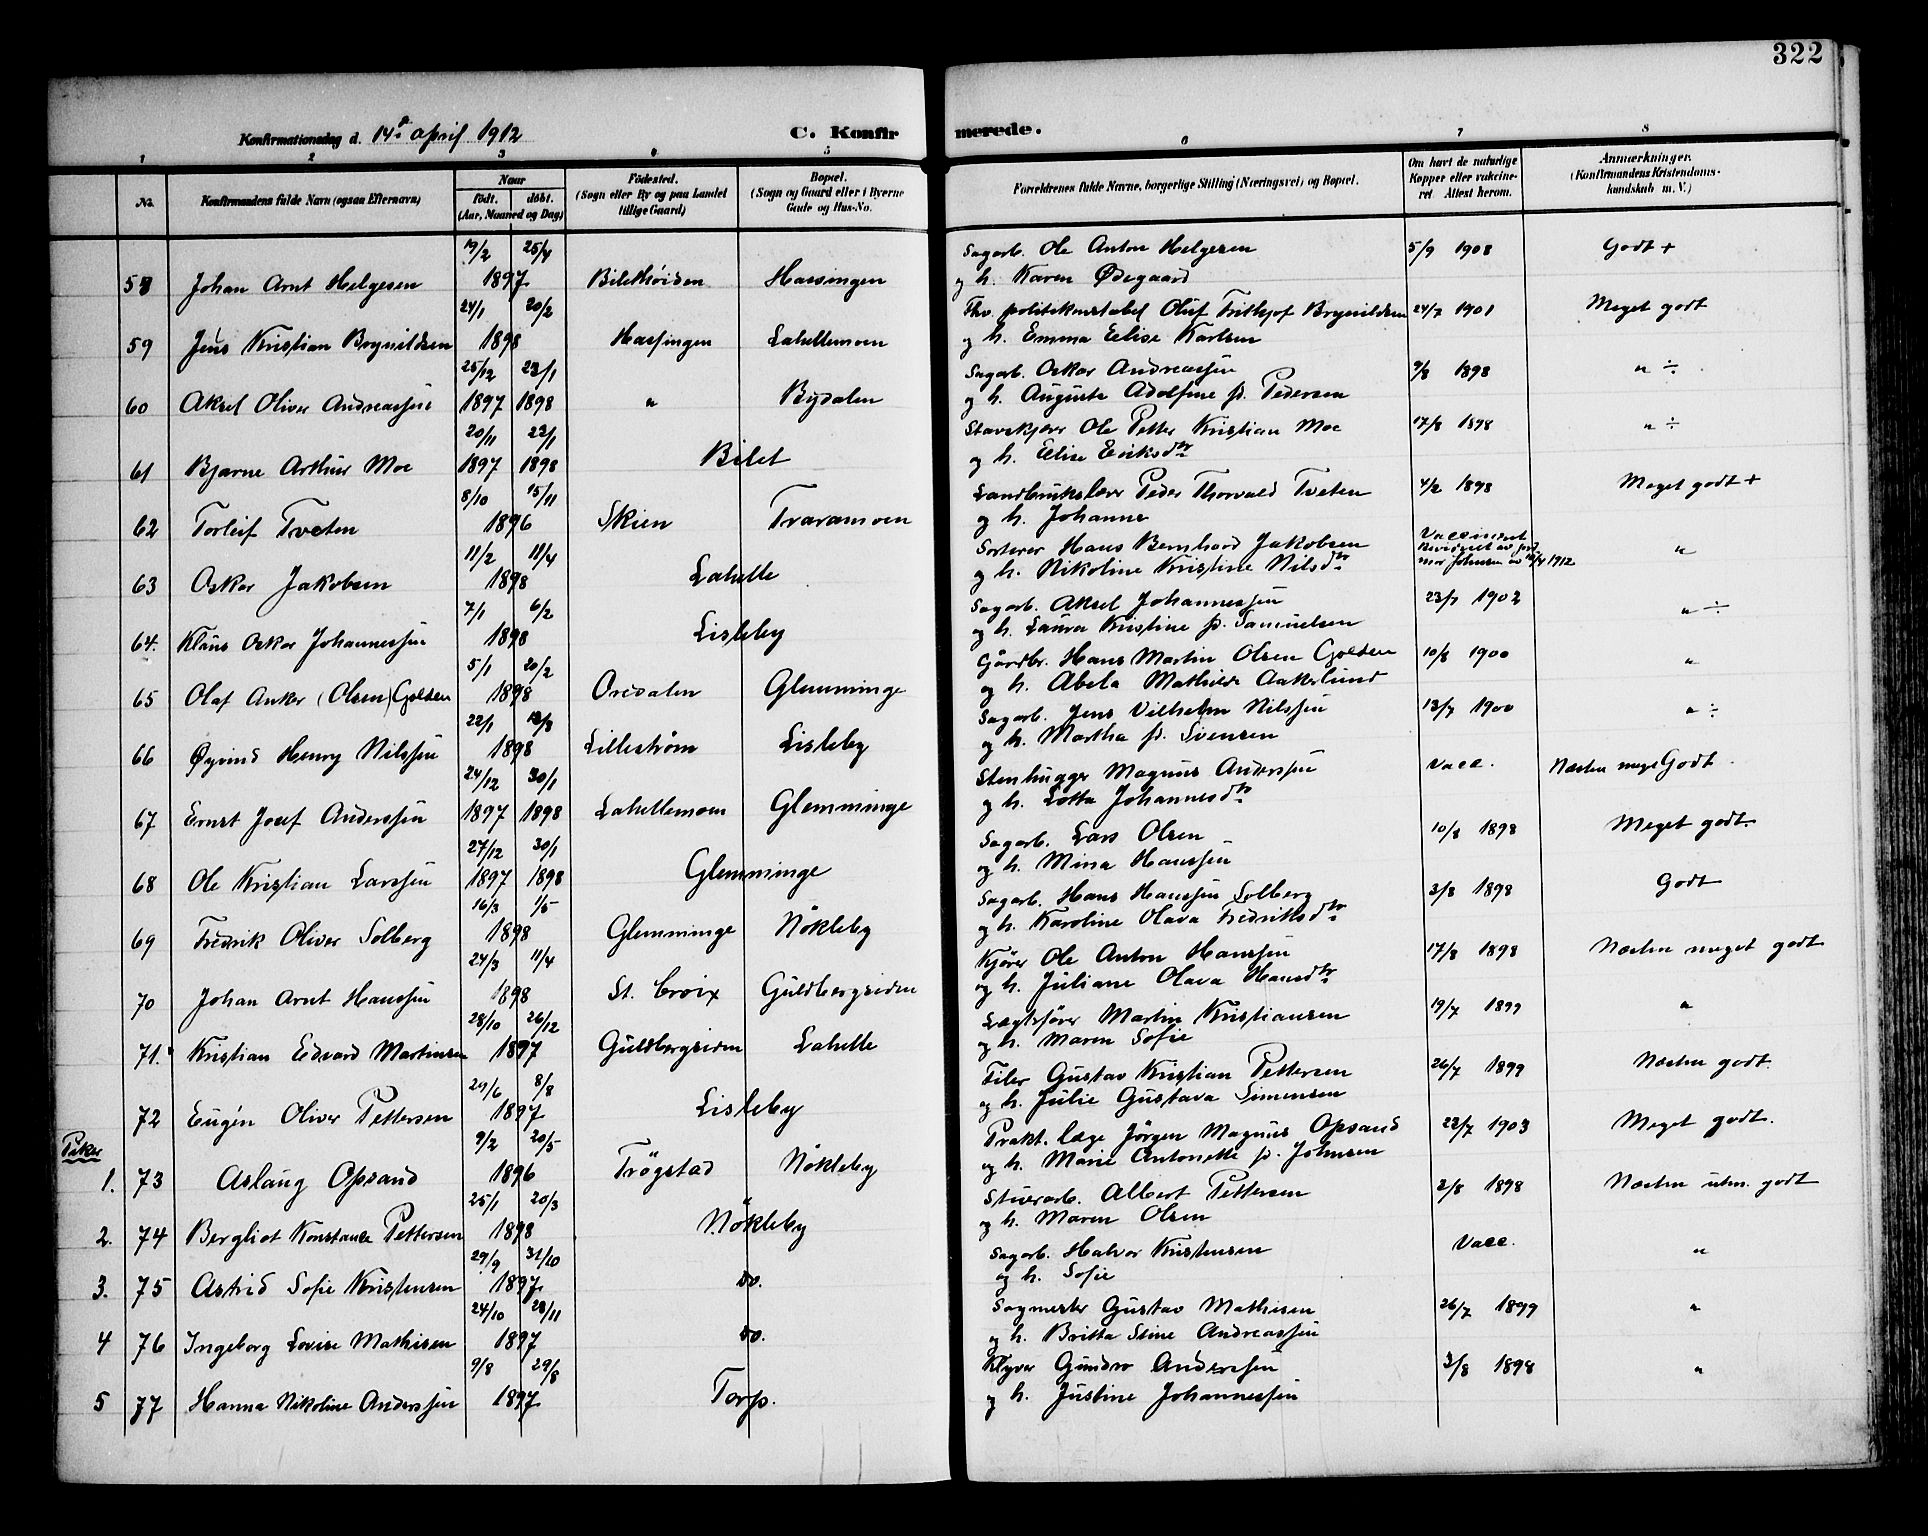 322
Konfirmationsdag d. 14de april 1912 C. Konfirmerede.
1 2 3 4 5 6 7 8
No. Konfirmandens fulde Navn (ogsaa Efternavn) Naar født. døbt. (Aar, Maaned og Dag) Fødested. (Sogn eller By og paa Landet tillige Gaard) Bopæl. (Sogn og Gaard eller i Byerne Gade og Hus-No. Forældrenes fulde Navne, borgerlige Stilling (Næringsvei) og Bopæl. Om havt de naturlige Kopper eller vakcineret Attest herom. Anmærkninger. (Konfirmandens Kristendomskundskab m. V.)
19/2 25/4 Sagarb. Ole Anton Helgesen 5/9 1908 Godt +
58 Johan Arnt Helgesen 1897 Bilethöiden Hassingen og h. Karen Ødegaard
24/1 20/2 Fhv. politikonstabel Oluf Fritkjof Brynildsen 24/7 1901 Meget godt
59 Jens Kristian Brynildsen 1898 Hassingen Lahellemoen og h. Emma Elise Karlsen
25/12 23/1 Sagarb. Oskar Andreassen 9/8 1898 " ÷
60 Aksel Oliver Andreassen 1897 1898 " Bydalen og h. Augusta Adolfine f. Pedersen
20/11 23/1 Stavskjører Ole Petter Kristian Moe 17/8 1898 " ÷
61 Bjarne Arthur Moe 1897 1898 Bilet og h. Elise Eriksdtr
8/10 15/11 Landbrukslærer Peder Thorvald Tveten 4/2 1898 Meget godt +
62 Torleif Tveten 1896 Skien Traramoen og h. Johanne
11/2 11/4 Sorterer Hans Bernhard Jakobsen Vaccineret "
63 Oskar Jakobsen 1898 Lahelle og h. Nikoline Kristine Nilsdtr Johnsen 1912
7/1 6/2 Sagarb. Aksel Johannessen 23/7 1902 " ÷
64. Klaus Oskar Johannessen 1898 Lisleby og h. Laura Kristine f. Samuelsen
5/1 20/2 Gårdbr. Hans Martin Olsen Golden 10/8 1900 "
65 Olaf Anker (Olsen) Golden 1898 Oredalen Glemminge og h. Abela Mathilde Aakerlund
22/1 13/3 Sagarb. Jens Vilhelm Nilssen 13/7 1900 " ÷
66 Øyvind Henry Nilssen 1898 Lillestrøm Lisleby og h. Martha f. Svensen
24/12 30/1 Stenhugger Magnus Anderssen Vacc. Næsten meget Godt
67 Ernst Josef Anderssen 1897 1898 Lahellemoen Glemminge og h. Lotta Johannesdtr
27/12 30/1 Sagarb. Lars Olsen 10/8 1898 Meget godt.
68 Ole Kristian Larssen 1897 1898 Glemminge og h. Mina Hanssen
16/3 1/5 Sagarb. Hans Hanssen Solberg 3/8 1898 Godt
69 Fredrik Oliver Solberg 1898 Glemminge Nökleby og h. Karoline Olava Fredriksdtr
24/3 11/4 Kjører Ole Anton Hanssen 17/8 1898 Næsten meget godt
70 Johan Arnt Hanssen 1898 St. Croix Guldbergsiden og h. Juliane Olava Hansdtr
28/10 26/12 Lægtsfører Martin Kristiansen 19/7 1899 "
71. Kristian Edvard Martinsen 1897 Guldbergsiden Lahelle og h. Maren Sofie
29/6 8/8 Filer Gustav Kristian Pettersen 26/7 1899 Næsten godt.
72 Eugén Oliver Pettersen 1897 Lisleby og h. Julie Gustava Simensen
Piker 9/2 20/5 Prakt. læge Jörgen Magnus Opsand 22/7 1903 Meget godt.
1. 73 Aslaug Opsand 1896 Trögstad Nökleby og h. Marie Antonette f. Johnsen
25/1 20/3 Stuerarb. Albert Pettersen 2/8 1898 Næsten utm. godt
2. 74 Bergliot Konstance Pettersen 1898 Nökleby og h. Maren Olsen
29/9 31/10 Sagarb. Halvor Kristensen Vacc. "
3. 75 Astrid Sofie Kristensen 1897 do. og h. Sofie
24/10 28/11 Sagmester Gustav Mathisen 26/7 1899 "
4 76 Ingeborg Lovise Mathisen 1897 do. og h. Britta Stine Andreassen
9/8 29/8 Klyver Gundro Anderssen 3/8 1898 "
5 77 Hanna Nikoline Anderssen 1897 Torp. og h. Justine Johannessen